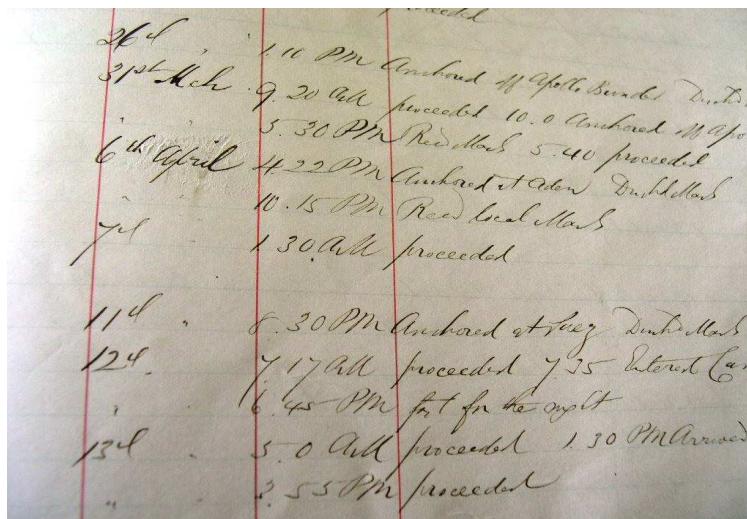 proceeded
26th " 1.10 PM Anchored off Apollo Bunder Dischd
31st Mch 9.20 AM proceeded 10.0 Anchored off Apo
" " 5.30 PM Recd Mails 5.40 proceeded
6th April 4.22 PM Anchored at Aden Dischd Mails
" " 10.15 PM Recd local Mails
7th 1.30 AM proceeded
11th " 8.30 PM Anchored at Suez Dischd Mails
12th 7.17 AM proceeded 7.35 Entered Can
" 6.45 PM fast for the night
13th " 5.0 AM proceeded 1.30 PM Arrived
" 3.55 PM proceeded